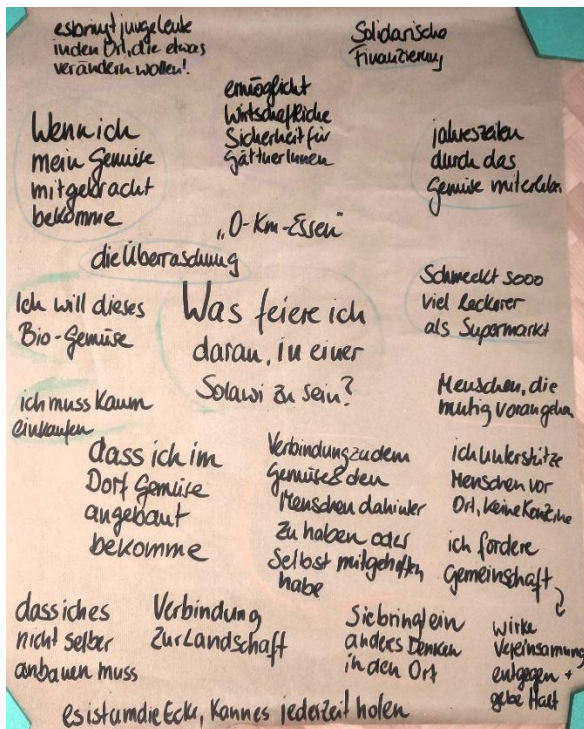 es bringt junge Leute
in den Ort, die etwas
verändern wollen!
Solidarische
Finanzierung
ermöglicht
Wirtschaftliche
Sicherheit für
GärtnerInnen
Wenn ich
mein Gemüse
mitgebracht
bekomme
jahreszeiten
durch das
Gemüse miterleben
„0-Km-Essen"
die Überraschung
Schmeckt sooo
viel leckerer
als Supermarkt
Ich will dieses
Bio-Gemüse
Was feiere ich
daran, in einer
Solawi zu sein?
Menschen, die
mutig vorangehen
ich muss kaum
einkaufen
dass ich im
Dorf Gemüse
angebaut
bekomme
Verbindung zu dem
Gemüse & den
Menschen dahinter
zu haben oder
selbst mitgeholfen
habe
ich unterstütze
Menschen vor
Ort, keine Konzerne
ich fördere
Gemeinschaft
wirke
Vereinsamung
entgegen +
gebe Halt
dass ich es
nicht selber
anbauen muss
Verbindung
zur Landschaft
Sie bringt ein
anders Denken
in den Ort
es ist um die Ecke, kann es jederzeit holen